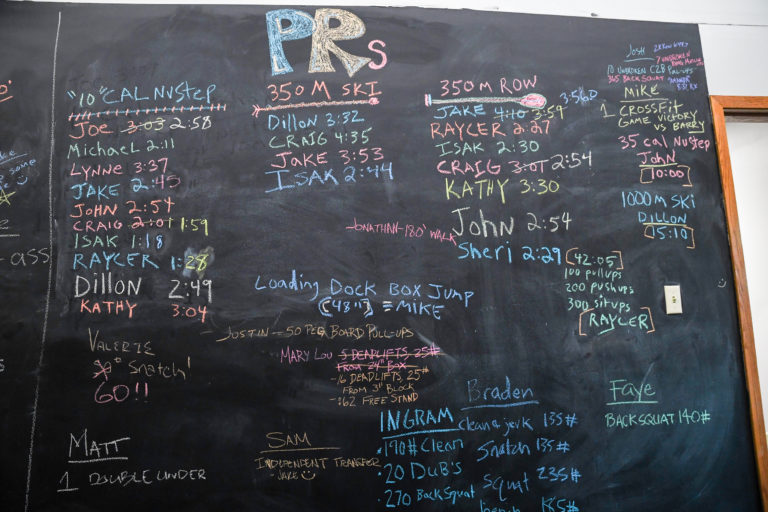 PRs
"10" CAL NUSTEP
JOE 3:03 2:58
MICHAEL 2:11
LYNNE 3:37
JAKE 2:45
JOHN 2:54
CRAIG 2:01 1:59
ISAK 1:18
RAYCER 1:28
DILLON 2:49
KATHY 3:04
VALERIE
"Snatch"
GO!!
MATT
1 DOUBLE UNDER
350 M SKI
DILLON 3:32
CRAIG 4:35
JAKE 3:53
ISAK 2:44
350 M ROW
JAKE 4:10 3:59
RAYCER 2:27
ISAK 2:30
CRAIG 3:01 2:54
KATHY 3:30
JOHN 2:54
Sheri 2:29
JONATHAN-180' WALK
Loading Dock Box Jump
("48") = MIKE
JUSTIN - 50 PEG BOARD PULL-UPS
MARY LOU 5 DEADLIFTS, 25#
FROM 24" BOX
-16 DEADLIFTS, 25#
FROM 3" BLOCK
-:62 FREE STAND
SAM
INDEPENDENT TRANSFER
-JAKE
INGRAM
190# Clean
20 DUB'S
270 Back Squat
Braden
clean & jerk 135#
Snatch 135#
Squat 235#
bench 185#
Faye
BACK SQUAT 140#
42:05
100 pullups
200 pushups
300 situps
RAYCER
JOSH
10 UNBROKEN C2B PULL-UPS
365 BACK SQUAT
MIKE
1 CROSSFIT
GAME VICTORY
VS BARRY
35 cal NUSTEP
JOHN
10:00
1000 M SKI
DILLON
15:10
some
-ass